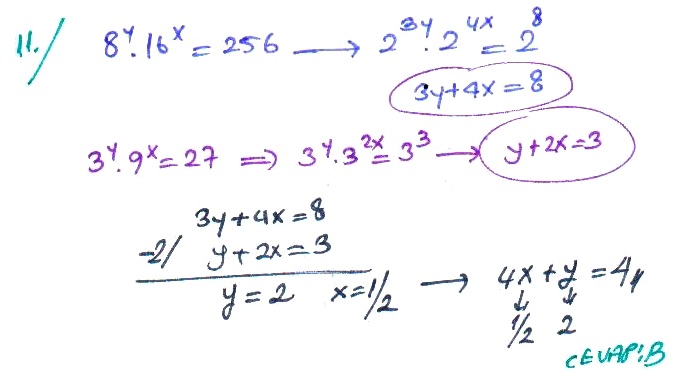 11./ 8^y.16^x = 256 → 2^3y.2^4x = 2^8
3y+4x=8
3^y.9^x=27 ⇒ 3^y.3^2x=3^3 → y+2x=3
3y+4x=8
-2/ y+2x=3
y=2 x=1/2 → 4x+y=4//
↓ ↓
1/2 2
CEVAP:B